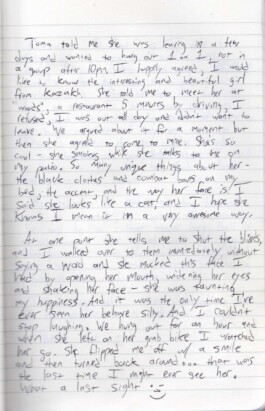 Toma told me she was leaving in a few
days and wanted to hang out 1 on 1, not in
a group after 10pm. I happily agreed, I would
like to know the interesting and beautiful girl
from Kazakh. She told me to meet her at
"moods", a restaurant 5 minutes by driving, I
refused, I was out all day and didn't want to
leave. We argued about it for a moment but
then she agreed to come to mine. She's so
cool - she smokes while she talks to me on
my patio. So many unique things about her -
the black clothes and bags on my
bed, the accent, and the way her face is! I
said she looks like a cat, and I hope she
knows I mean it in a very awesome way.
At one point she tells me to shut the blinds,
and I walked over to them immediately without
saying a word and she makes this face
by opening her mouth, widening her eyes
and shaking her face - she was taunting
my happiness. And it was the only time I've
ever seen her behave silly. And I couldn't
stop laughing. We hung out for an hour and
when she left on her grab bike I watched
her go. She flipped me off w/ a smile
and then turned back around... that was
the last time I might ever see her.
What a last sight :)